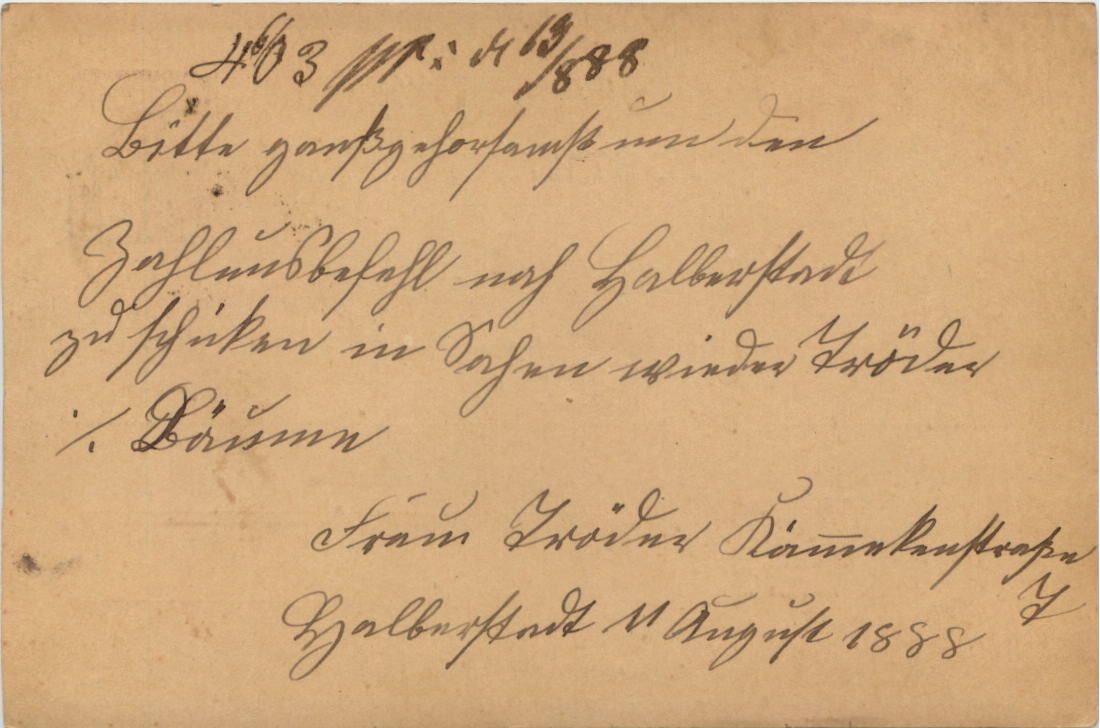 403
13/8 88
Bitte ganß gehorsamst um den
Zahlunsbefehl nach Halberstadt
zu schiken in Sachen wieder Tröder
./. Bäume
Frau Tröder Kämekenstraße
Halberstadt 11 August 1888